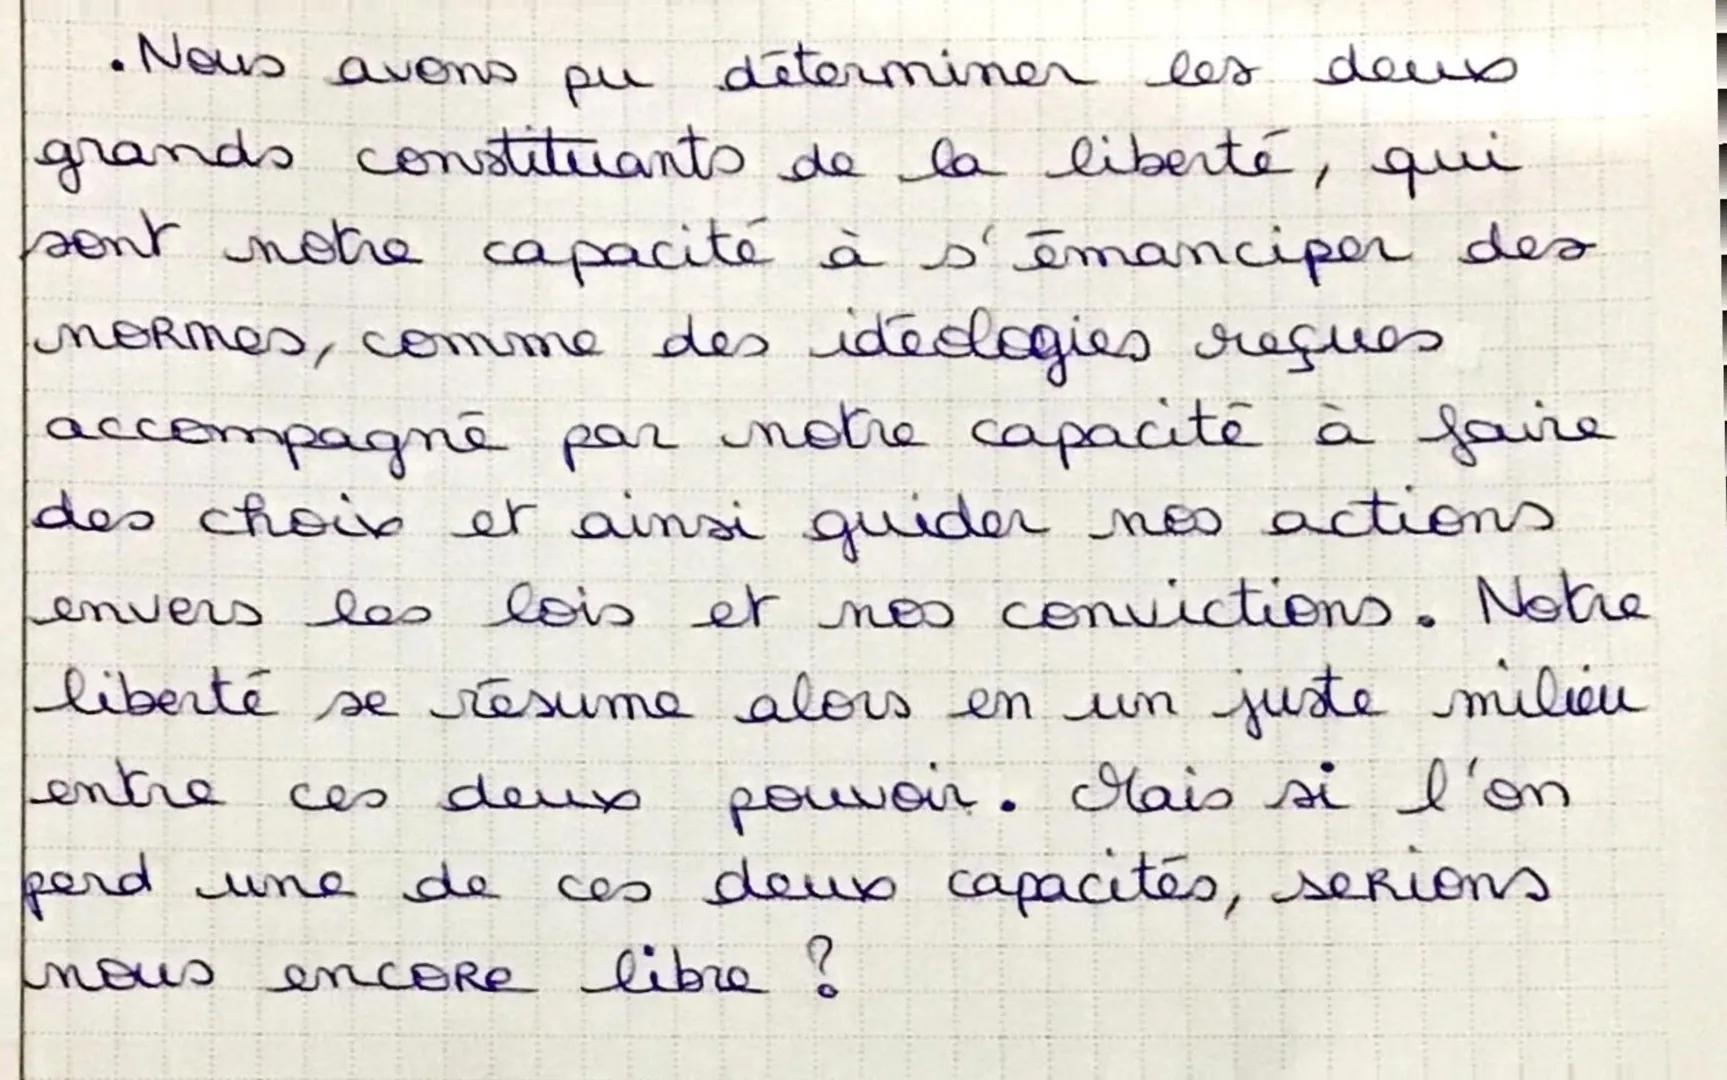 . Nous avons pu déterminer les deux
grands constituants de la liberté, qui
sont notre capacité à s'émanciper des
normes, comme des idéologies reçues
accompagné par notre capacité à faire
des choix et ainsi guider nos actions
envers les lois et nos convictions. Notre
liberté se résume alors en un juste milieu
entre ces deux pouvoir. Mais si l'on
perd une de ces deux capacités, serions
nous encore libre ?